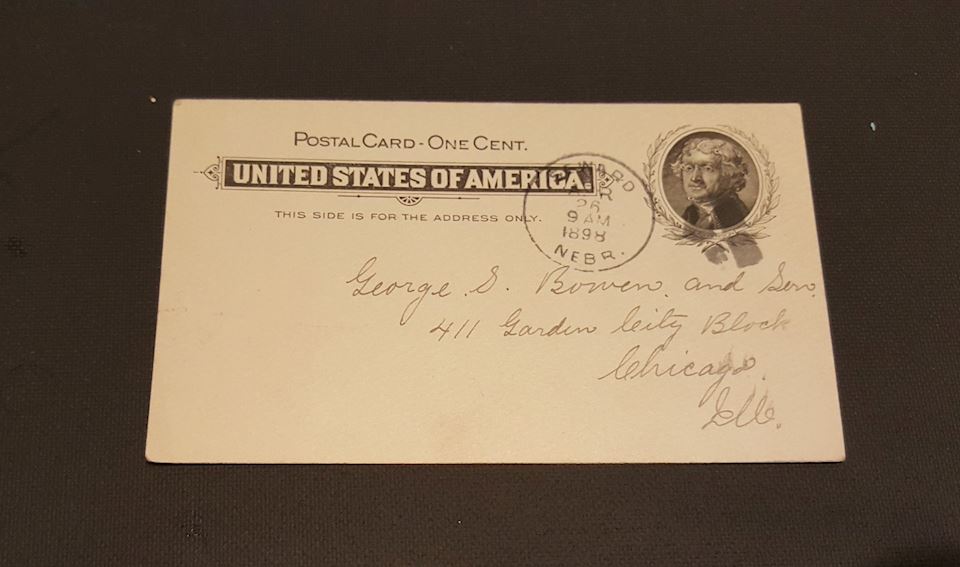 POSTAL CARD - ONE CENT.
UNITED STATES OF AMERICA.
THIS SIDE IS FOR THE ADDRESS ONLY.
26
9 AM
1898
NEBR.
George. S. Bowen. and Son.
411 Garden City Block
Chicago.
Ill.